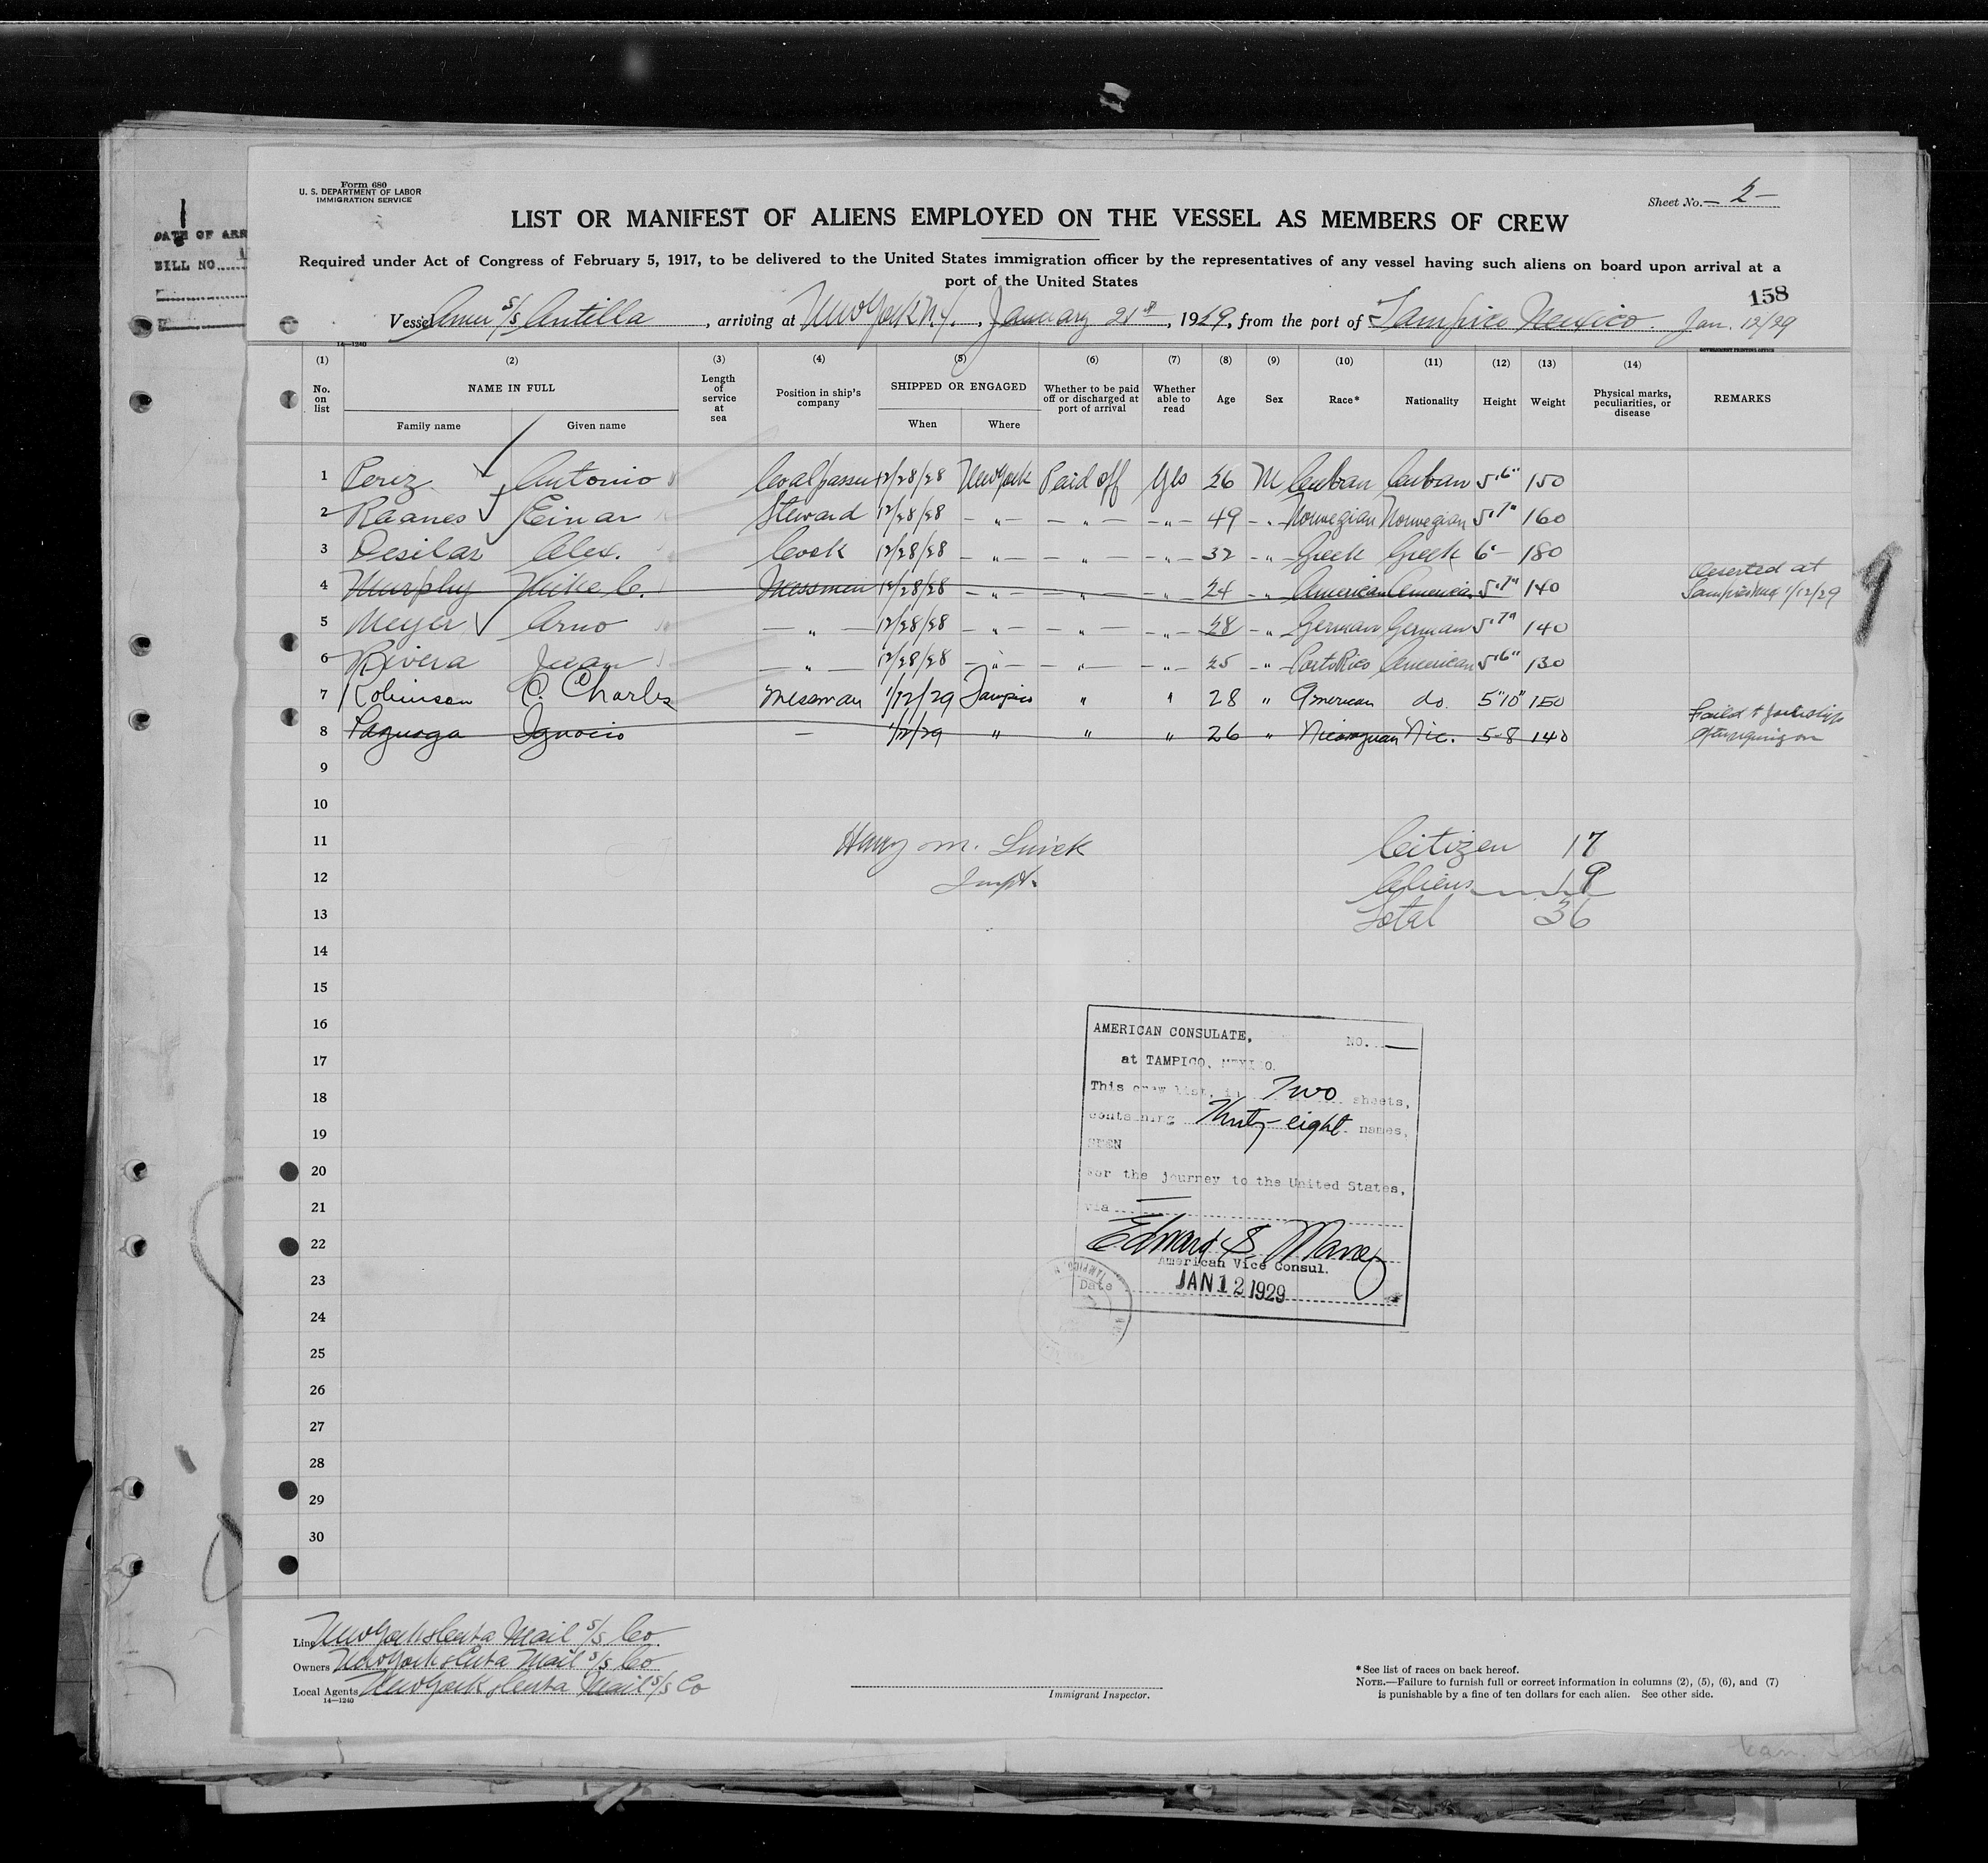 Form 680
U. S. DEPARTMENT OF LABOR
IMMIGRATION SERVICE
Sheet No. 2
LIST OR MANIFEST OF ALIENS EMPLOYED ON THE VESSEL AS MEMBERS OF CREW
Required under Act of Congress of February 5, 1917, to be delivered to the United States immigration officer by the representatives of any vessel having such aliens on board upon arrival at a
port of the United States
158
Vessel Amer S/S Antilla, arriving at New York N.Y., January 21st, 1929, from the port of Tampico Mexico. Jan. 12/29
14—1240
GOVERNMENT PRINTING OFFICE
(1) (2) (3) (4) (5) (6) (7) (8) (9) (10) (11) (12) (13) (14)
No. on list NAME IN FULL Length of service at sea Position in ship's company SHIPPED OR ENGAGED Whether to be paid off or discharged at port of arrival Whether able to read Age Sex Race* Nationality Height Weight Physical marks, peculiarities, or disease REMARKS
Family name Given name When Where
1 Perez Antonio Coalpasser 12/28/28 New York Paid off Yes 26 M Cuban Cuban 5'6" 150
2 Raanes Einar Steward 12/28/28 — " — — " — — " — 49 — " Norwegian Norwegian 5'7" 160
3 Desilas Alex. Cook 12/28/28 — " — — " — — " — 32 — " Greek Greek 6' — 180
4 Murphy Mike C. Messman 12/28/28 — " — — " — — " — 24 — " American American 5'7" 140 Deserted at
Tampico Mex 1/12/29
5 Meyer Arno — " — 12/28/28 — " — — " — — " — 28 — " German German 5'7" 140
6 Rivera Juan — " — 12/28/28 — " — — " — — " — 25 — " Porto Rico American 5'6" 130
7 Robinson C. Charles Messman 1/12/29 Tampico " " 28 " American do. 5"10" 150
8 Paguaga Ignacio — 1/12/29 " " " 26 " Nicaraguan Nic. 5-8 140 Failed to join ship
after signing on
9
10
11 Harry M. Citizen 17
12 Inspt. Aliens 19
13 Total 36
14
15
16
17
18
19
20
21
22
23
24
25
26
27
28
29
30
AMERICAN CONSULATE, NO. —
at TAMPICO, MEXICO.
This crew list, in Two sheets,
containing Thirty-eight names,
SEEN
For the journey to the United States,
via
Edward S. Maney
American Vice Consul.
Date JAN 12 1929
Line New York & Cuba Mail S/S Co
Owners New York & Cuba Mail S/S Co
Local Agents New York & Cuba Mail S/S Co
14—1240
Immigrant Inspector.
* See list of races on back hereof.
NOTE.—Failure to furnish full or correct information in columns (2), (5), (6), and (7)
is punishable by a fine of ten dollars for each alien. See other side.
DATE OF ARR
BILL NO.